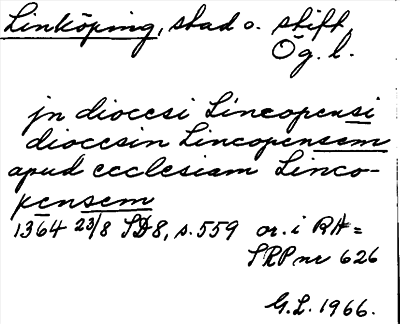 Linköping, stad o. stift,
Ög. l.
jn diocesi Lincopensi
diocesin Lincopensem
apud ecclesiam Linco-
pensem
1364 23/8 SD8, s. 559 or. i RA =
SRP nr 626
G.L. 1966.